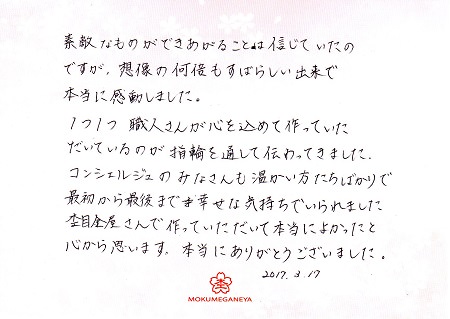 素敵なものができあがることは信じていたの
ですが、想像の何倍もすばらしい出来で
本当に感動しました。
1つ1つ 職人さんが心を込めて作っていた
だいているのが指輪を通して伝わってきました。
コンシェルジュのみなさんも温かい方たちばかりで
最初から最後まで幸せな気持ちでいられました
杢目金屋さんで作っていただいて本当によかったと
心から思います。本当にありがとうございました。
2017.3.17
MOKUMEGANEYA